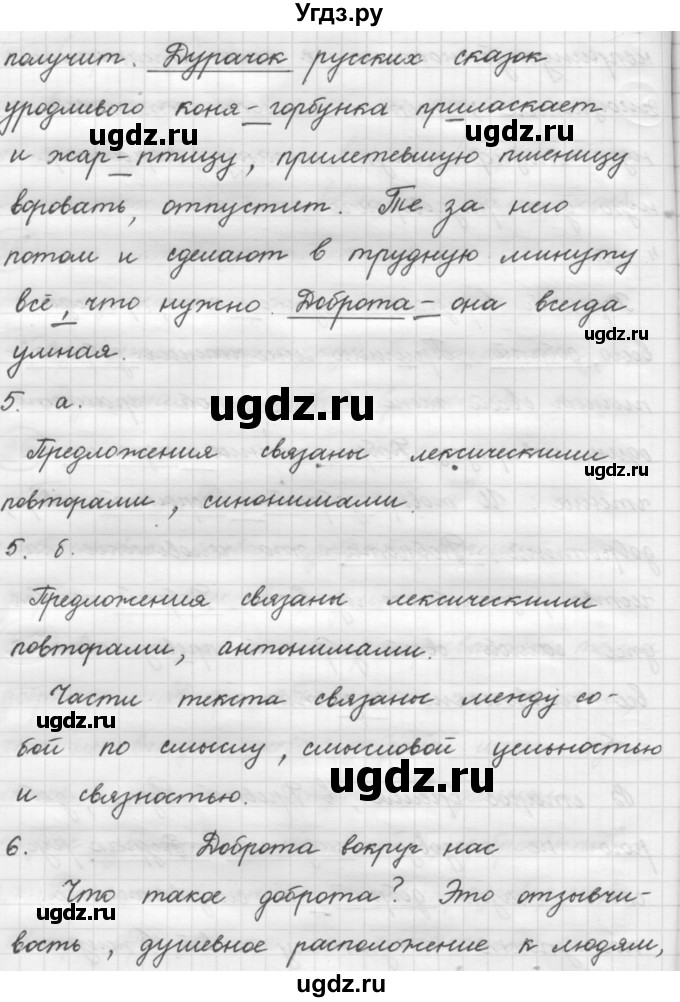 Угдз.ру
получит. Дурачок русских сказок
уродливого коня-горбунка приласкает
ugdz.ru ugdz.ru
и жар-птицу, прилетевшую пшеницу
воровать, отпустит. Те за него
потом и сделают в трудную минуту
всё, что нужно. Доброта - она всегда
ugdz.ru
умная.
5. а.
ugdz.ru
Предложения связаны лексическими
ugdz.ru
повторами, синонимами.
5. б.
Предложения связаны лексическими
повторами, антонимами.
Части текста связаны между со-
ugdz.ru
бой по смыслу, смысловой цельностью
ugdz.ru
и связностью.
6. Доброта вокруг нас
Что такое доброта? Это отзывчи-
ugdz.ru
вость, душевное расположение к людям,
ugdz.ru